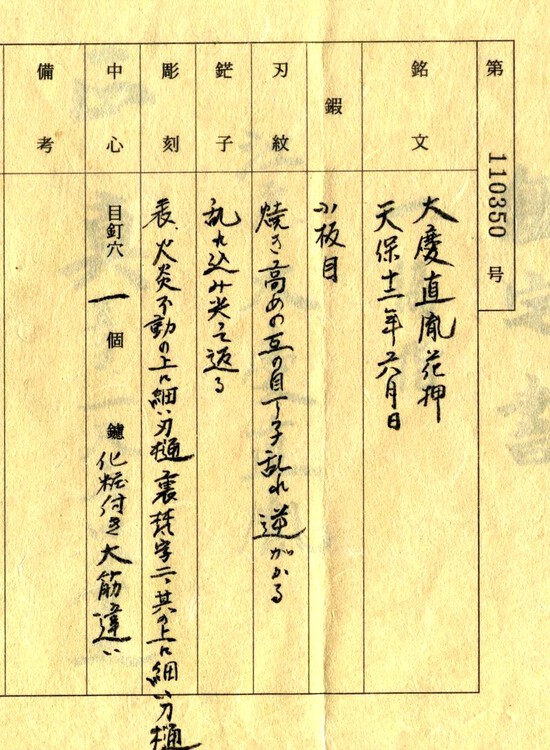 第 110350 号
銘文
大慶直胤花押
天保十二年六月日
鍜
小板目
刃紋
焼き高めの互の目丁子乱れ逆がかる
鋩子
乱れ込み尖て返る
彫刻
表、火炎不動の上に細い刃樋 裏 梵字二ツ其の上に細い刃樋
中心
目釘穴 一 個 鑢 化粧付き大筋違い
備考